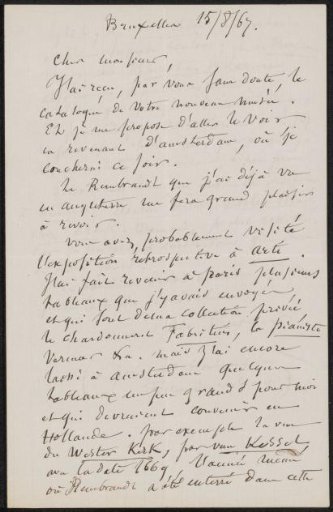 Bruxelles 15/8/67.
Cher monsieur
J'ai reçu, par vous sans doute, le
catalogue de votre nouveau musée.
Et je me propose d'aller le voir
en revenant d'amsterdam, où je
coucherai ce soir.
Le Rembrandt que j'ai déjà vu
en angleterre me fera grand plaisir
à revoir.
Vous avez probablement visité
l'exposition retrospective à
J'ai fait revenir à paris plusieurs
tableaux que j'y avais envoyé
et qui sont de ma collection privée
le chardonneret Fabritius, la pianiste
Vermeer &a. mais j'ai encore
laissé à amsterdam quelques
tableaux un peu grands pour moi
et qui devraient convenir en
Hollande. par exemple la vue
du Wester Kirk, par van Kessel,
avec la date 1669, l'année même
où Rembrandt a été enterré dans cette